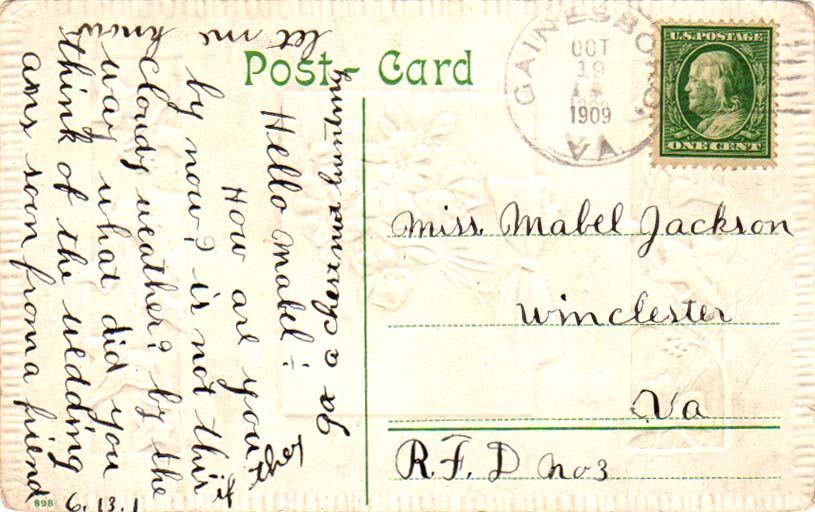 Post-Card
GAINESBORO,
OCT
19
1909
VA
U.S. POSTAGE
ONE CENT
Miss. Mabel Jackson
Winchester
Va
R.F.D no 3
Hello Mabel :-
How are you
by now? is not this
cloudy weather? by the
way what did you
think of the wedding
ans soon froma friend
let me know
if they
go a chestnut hunting
898